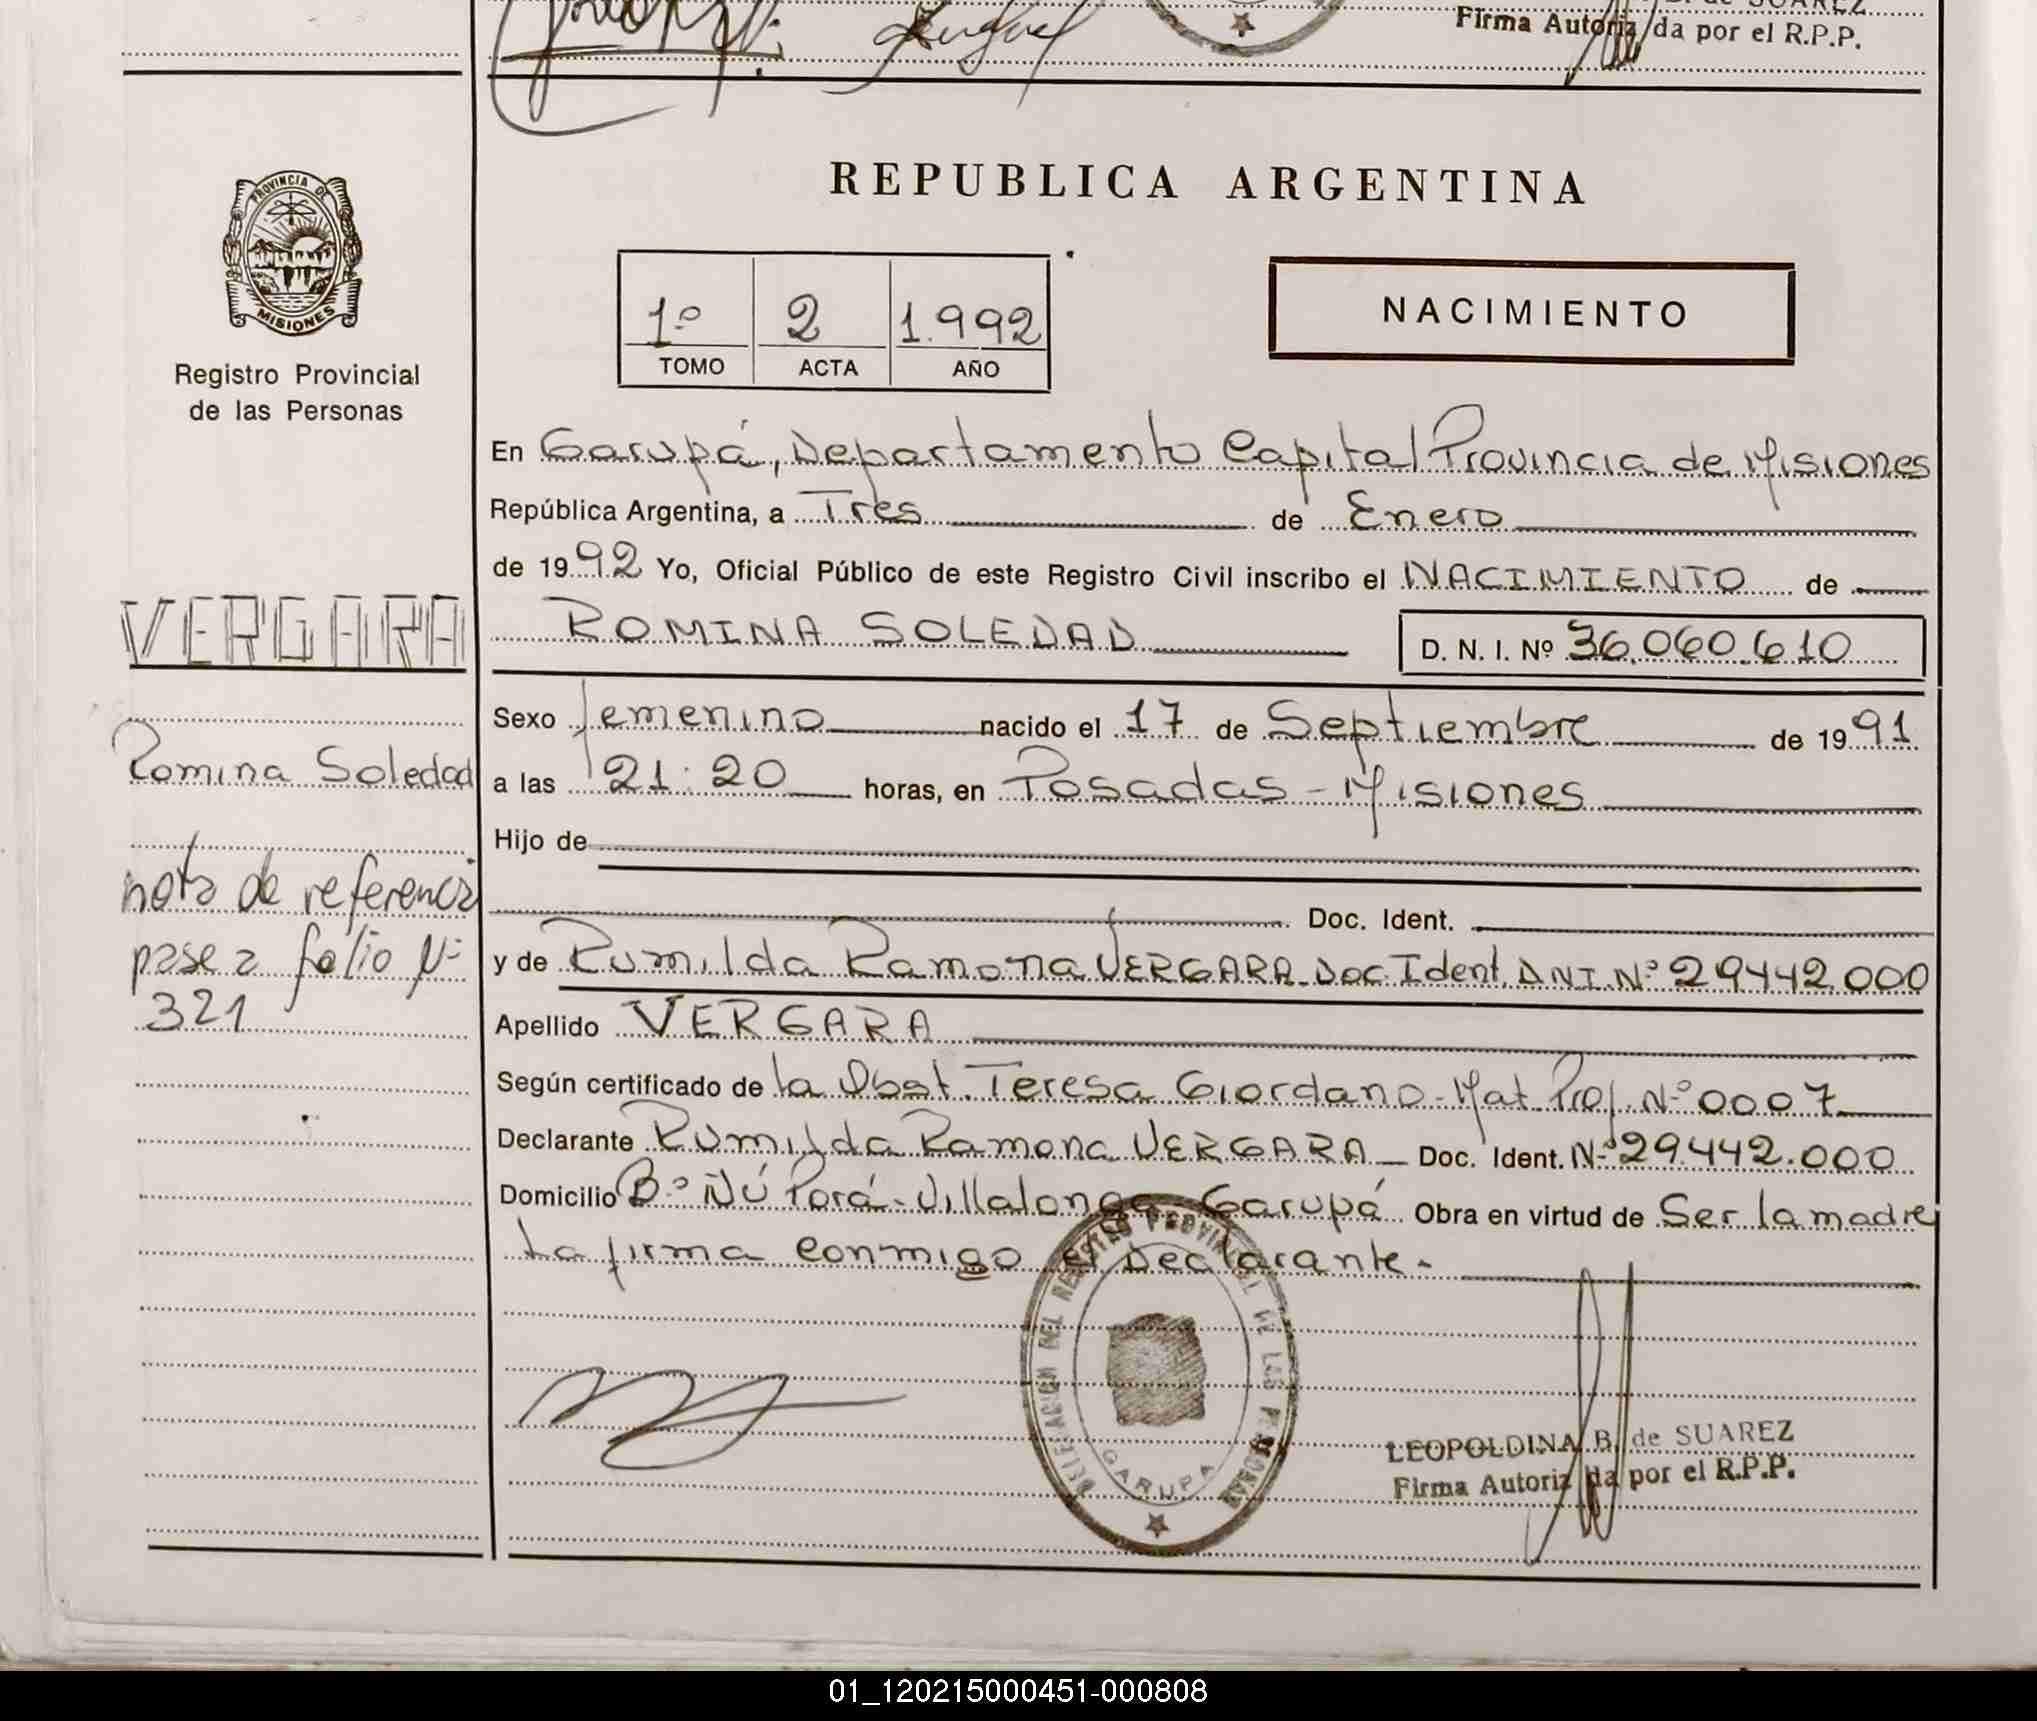 de SUAREZ
Firma Autorizada por el R.P.P.
PROVINCIA DE
MISIONES
Registro Provincial
de las Personas
REPUBLICA ARGENTINA
1º 2 1.992
TOMO ACTA AÑO
NACIMIENTO
En Garupá, Departamento Capital Provincia de Misiones
República Argentina, a Tres de Enero
de 1992 Yo, Oficial Público de este Registro Civil inscribo el NACIMIENTO de
VERGARA
ROMINA SOLEDAD
D. N. I. Nº 36.060.610
Sexo femenino nacido el 17 de Septiembre de 1991
Romina Soledad
a las 21:20 horas, en Posadas - Misiones
Hijo de
nota de referencia
Doc. Ident.
pase a folio Nº
321
y de Rumilda Ramona VERGARA - Doc. Ident. DNI. Nº 29442.000
Apellido VERGARA
Según certificado de la Obst. Teresa Giordano - Mat. Prof. Nº 0007
Declarante Rumilda Ramona VERGARA Doc. Ident. Nº 29.442.000
Domicilio Bº Ñú Porá - Villalonga Garupá Obra en virtud de Ser la madre
La firma conmigo el Declarante.
DELEGACION DEL REGISTRO PROVINCIAL DE LAS PERSONAS
GARUPA
LEOPOLDINA B. de SUAREZ
Firma Autorizada por el R.P.P.
01_120215000451-000808